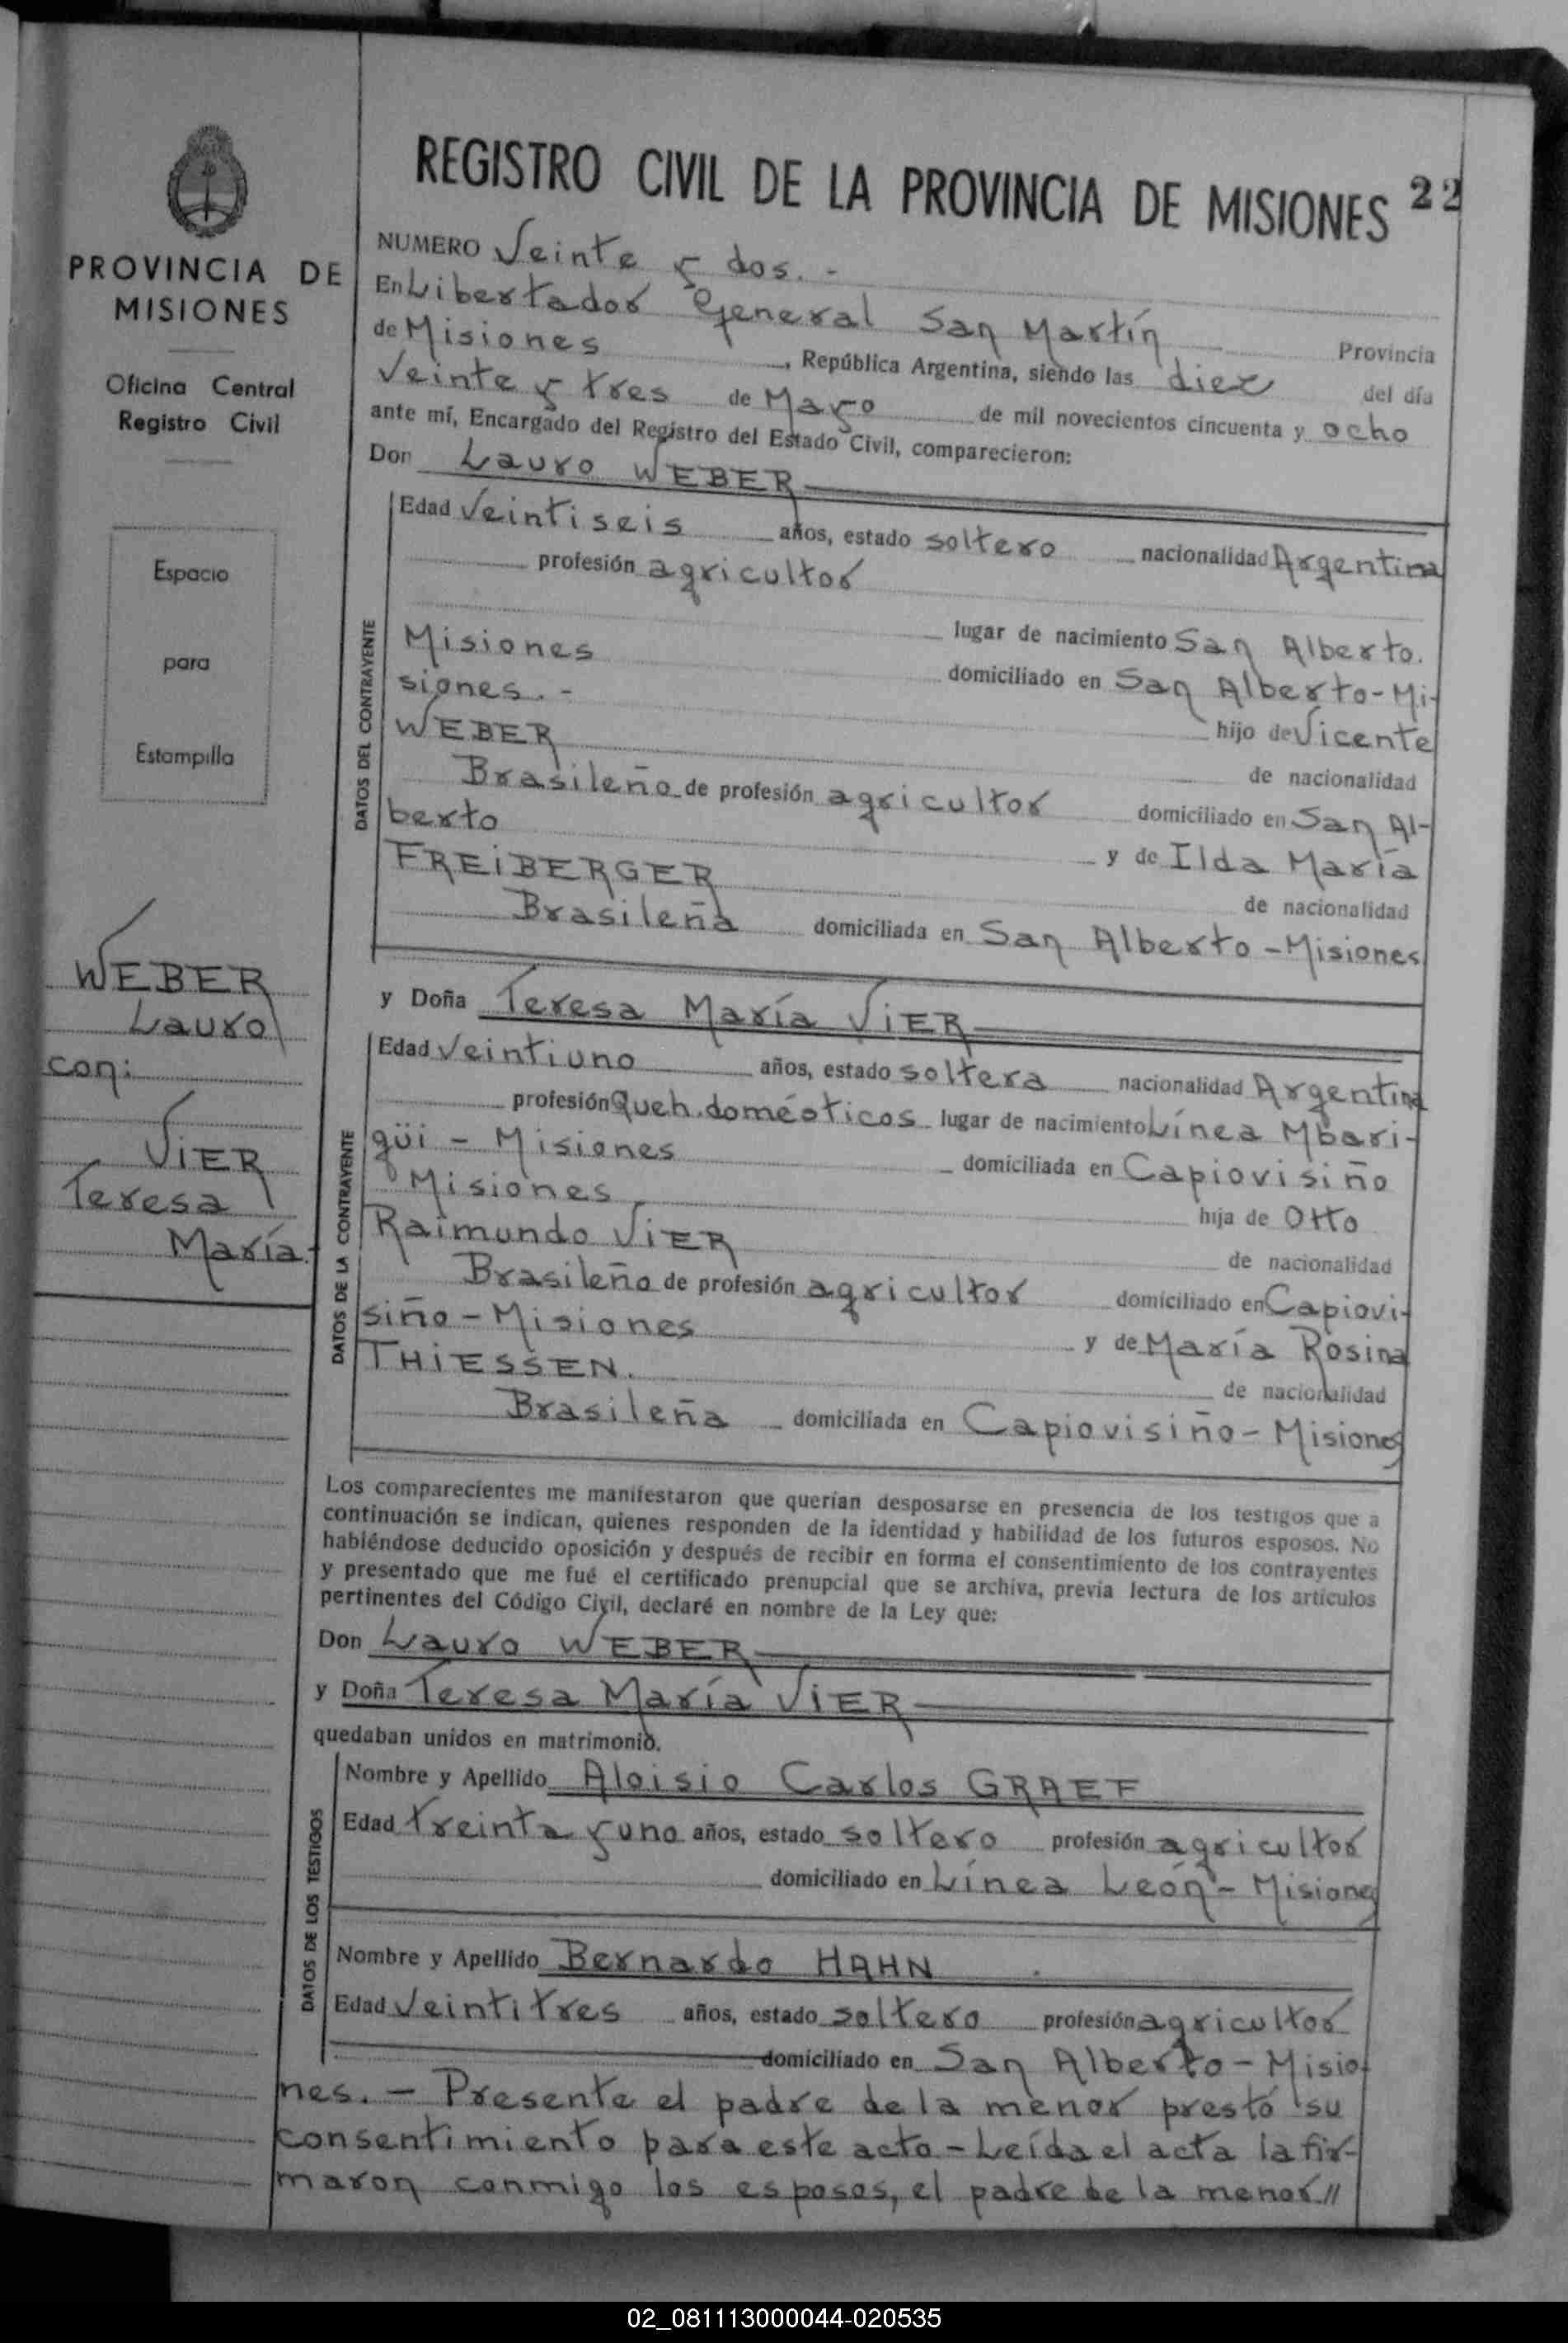 REGISTRO CIVIL DE LA PROVINCIA DE MISIONES 22
PROVINCIA DE
MISIONES
Oficina Central
Registro Civil
Espacio
para
Estampilla
WEBER
Lauro
con:
VIER
Teresa
María.
NUMERO Veinte y dos. -
En Libertador General San Martín Provincia
de Misiones, República Argentina, siendo las diez del día
Veinte y tres de Mayo de mil novecientos cincuenta y ocho
ante mí, Encargado del Registro del Estado Civil, comparecieron:
Don Lauro WEBER
DATOS DEL CONTRAYENTE
Edad Veintiseis años, estado soltero nacionalidad Argentina
profesión agricultor
lugar de nacimiento San Alberto.
Misiones domiciliado en San Alberto-Mi-
siones. - hijo de Vicente
WEBER de nacionalidad
Brasileño de profesión agricultor domiciliado en San Al-
berto y de Ilda María
FREIBERGER de nacionalidad
Brasileña domiciliada en San Alberto-Misiones
y Doña Teresa María VIER
DATOS DE LA CONTRAYENTE
Edad Veintiuno años, estado soltera nacionalidad Argentina
profesión Queh. domésticos lugar de nacimiento Línea Mbari-
güi - Misiones domiciliada en Capiovisiño
Misiones hija de Otto
Raimundo VIER de nacionalidad
Brasileño de profesión agricultor domiciliado en Capiovi-
siño-Misiones y de María Rosina
THIESSEN. de nacionalidad
Brasileña domiciliada en Capiovisiño-Misiones
Los comparecientes me manifestaron que querían desposarse en presencia de los testigos que a
continuación se indican, quienes responden de la identidad y habilidad de los futuros esposos. No
habiéndose deducido oposición y después de recibir en forma el consentimiento de los contrayentes
y presentado que me fué el certificado prenupcial que se archiva, previa lectura de los artículos
pertinentes del Código Civil, declaré en nombre de la Ley que:
Don Lauro WEBER
y Doña Teresa María VIER
quedaban unidos en matrimonio.
DATOS DE LOS TESTIGOS
Nombre y Apellido Aloisio Carlos GRAEF
Edad treinta y uno años, estado soltero profesión agricultor
domiciliado en Línea León-Misiones
Nombre y Apellido Bernardo HAHN
Edad Veintitres años, estado soltero profesión agricultor
domiciliado en San Alberto-Misio-
nes. - Presente el padre de la menor prestó su
consentimiento para este acto-Leída el acta la fir-
maron conmigo los esposos, el padre de la menor//
02_081113000044-020535